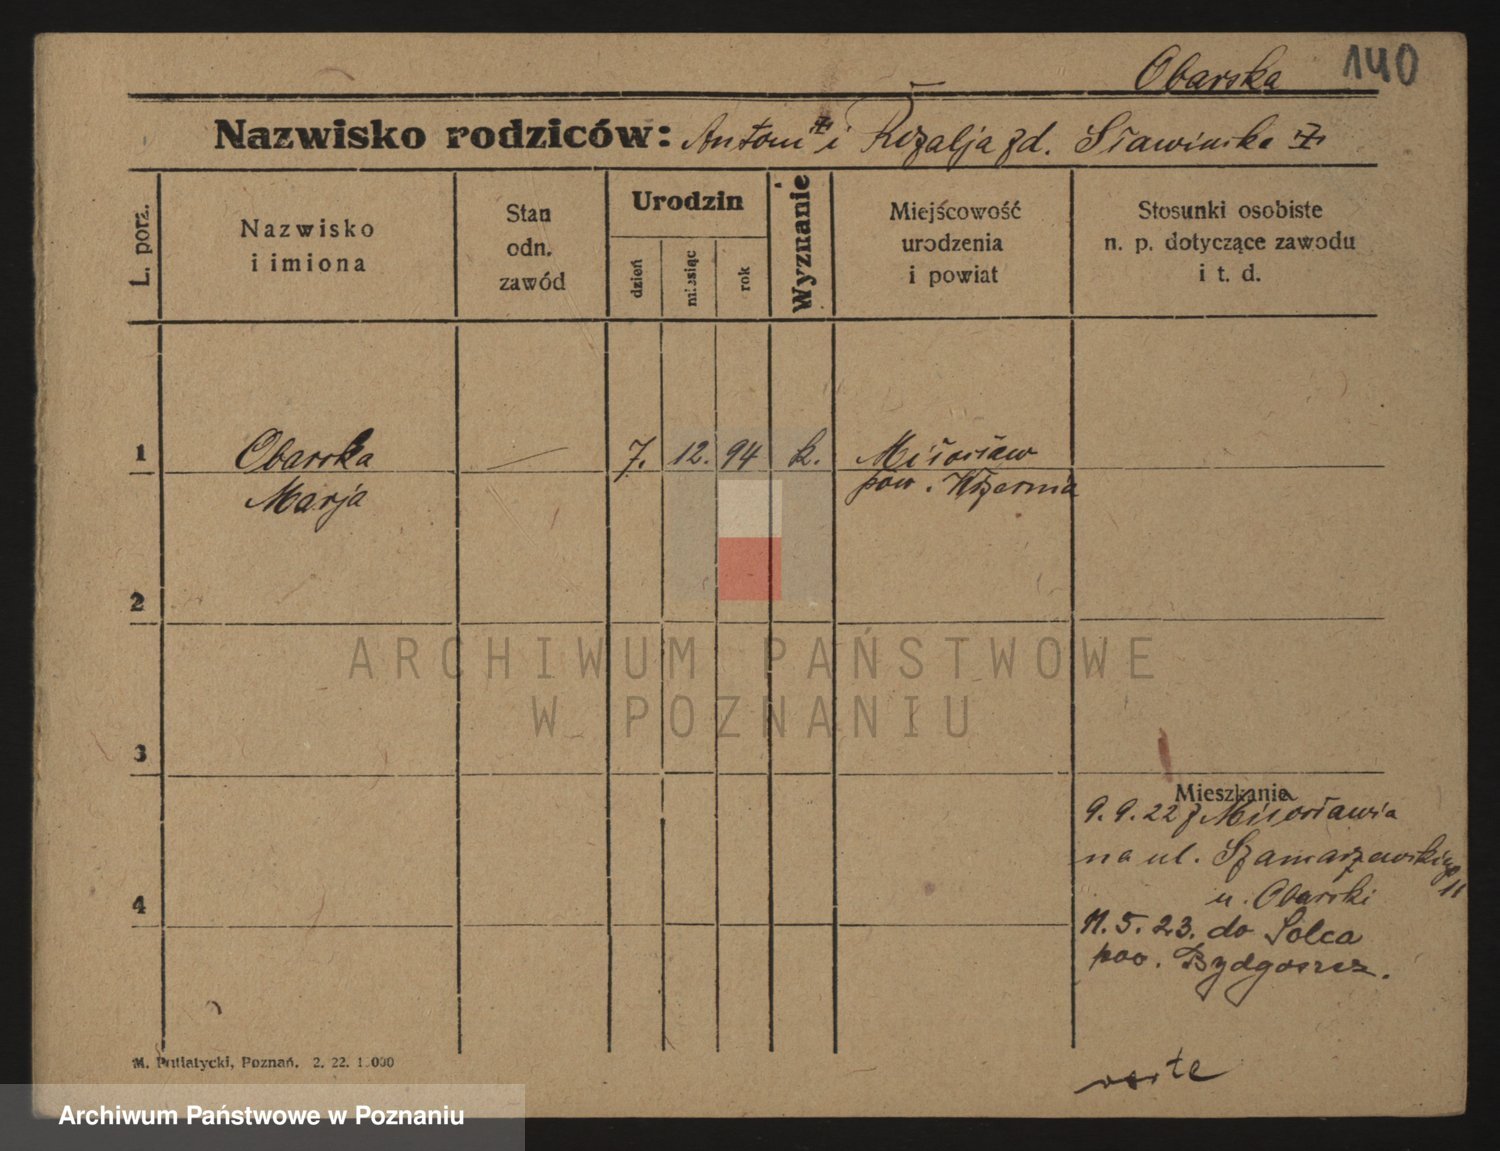 Obarska 140
Nazwisko rodziców: Antoni i Rozalja zd. Sławinska
L. porz.
Nazwisko
i imiona
Stan
odn.
zawód
Urodzin
dzień
miesiąc
rok
Wyznanie
Miejscowość
urodzenia
i powiat
Stosunki osobiste
n. p. dotyczące zawodu
i t. d.
1 Obarska 7. 12. 94 k. Miłosław
Marja pow. Września
2
3
Mieszkanie
9.9.22 z Miłosławia
na ul. Szamarzewskiego 11
u. Obarski
4
11.5.23. do Solca
pow. Bydgoszcz.
M. Putiatycki, Poznań. 2. 22. 1.000
ARCHIWUM PAŃSTWOWE
W POZNANIU
Archiwum Państwowe w Poznaniu